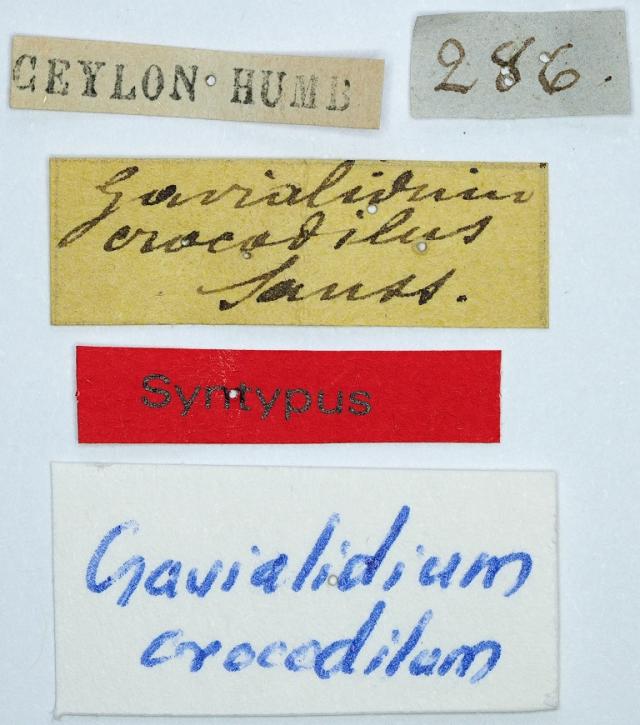 CEYLON HUMB
286.
Gavialidium
crocodilus
Sauss.
Syntypus
Gavialidium
crocodilum